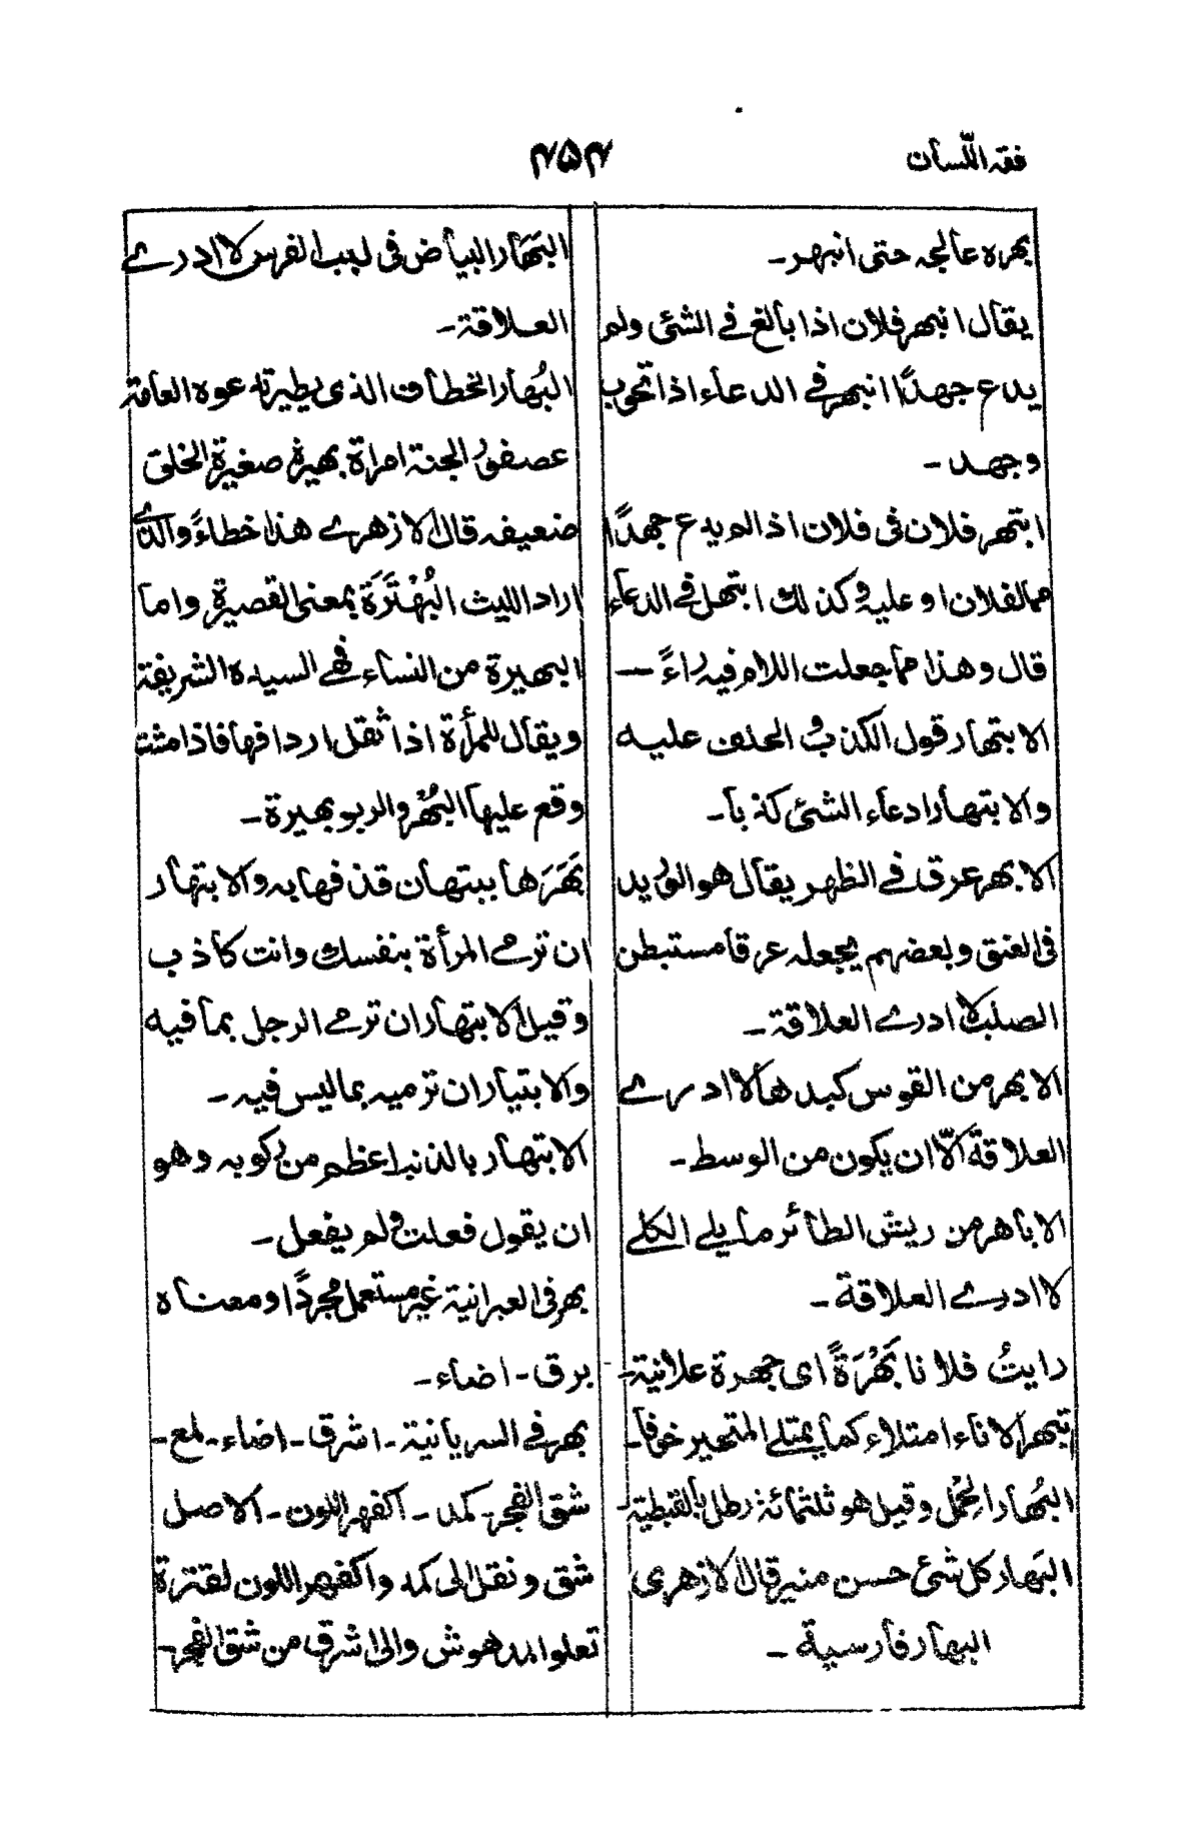 فقه اللّسان
۴۵۴
بهره عالجه حتى انبهر۔
يقال انبهر فلان اذا بالغ فے الشئى ولم
يدع جهدًا انبهر فے الدعاء اذا تحوب
وجهد۔
ابتهر فلان فى فلان اذا لم يدع جهدًا
مما لفلان او عليه وكذلك ابتهل فے الدعاء
قال وهذا مما جعلت اللام فيه راءً —
الابتهار قول الكذب و الحلف عليه
والابتهار ادعاء الشئى كذبا۔
الابهر عرق فے الظهر يقال هو الوريد
فى العنق وبعضهم يجعله عرقا مستبطن
الصلب لا ادرے العلاقة۔
الابهر من القوس كبدها لا ادرے
العلاقة الّا ان يكون من الوسط۔
الاباهر من ريش الطائر ما يلے الكلے
لا ادرے العلاقة۔
رايتُ فلانا بَهْرَةً اى جهرة علانية۔
تبهر الاناء امتلاء كما يمتلے المتحير خوفا۔
البُهار الحِمْل وقيل هو ثلثمائة رطل بالقبطية۔
البَهار كل شئ حسن منير قال الازهرى
البهار فارسية۔
البَهَار البياض فى لبب الفرس لا ادرے
العلاقة۔
البُهار الخطاف الذى يطير تدعوه العامة
عصفور الجنة امراة بهيرة صغيرة الخلق
ضعيفه قال الازهرے هذا خطاءً والذے
اراد الليث البُهْتَرَة بمعنى القصيرة واما
البهيرة من النساء فهے السيده الشريفة
ويقال للمرأة اذا ثقل اردافها فاذا مشت
وقع عليها البُهْر والربو بهيرة۔
بَهَرَها ببهتان قذفها به والابتهار
ان ترمے المرأة بنفسك وانت كاذب
وقيل الابتهار ان ترمے الرجل بما فيه
والابتيار ان ترميه بما ليس فيه۔
الابتهار بالذنب اعظم من ركوبه وهو
ان يقول فعلت ولم يفعل۔
بهر فى العبرانية غير مستعمل مجردًا ومعناه
برق۔ اضاء۔
بهر فے السريانية۔ اشرق۔ اضاء۔ لمع۔
شق الفجر۔ كمد۔ اكفهر اللون۔ الاصل
شق ونقل الى كمد واكفهر اللون لقترة
تعلوا المدهوش والى اشرق من شق الفجر۔